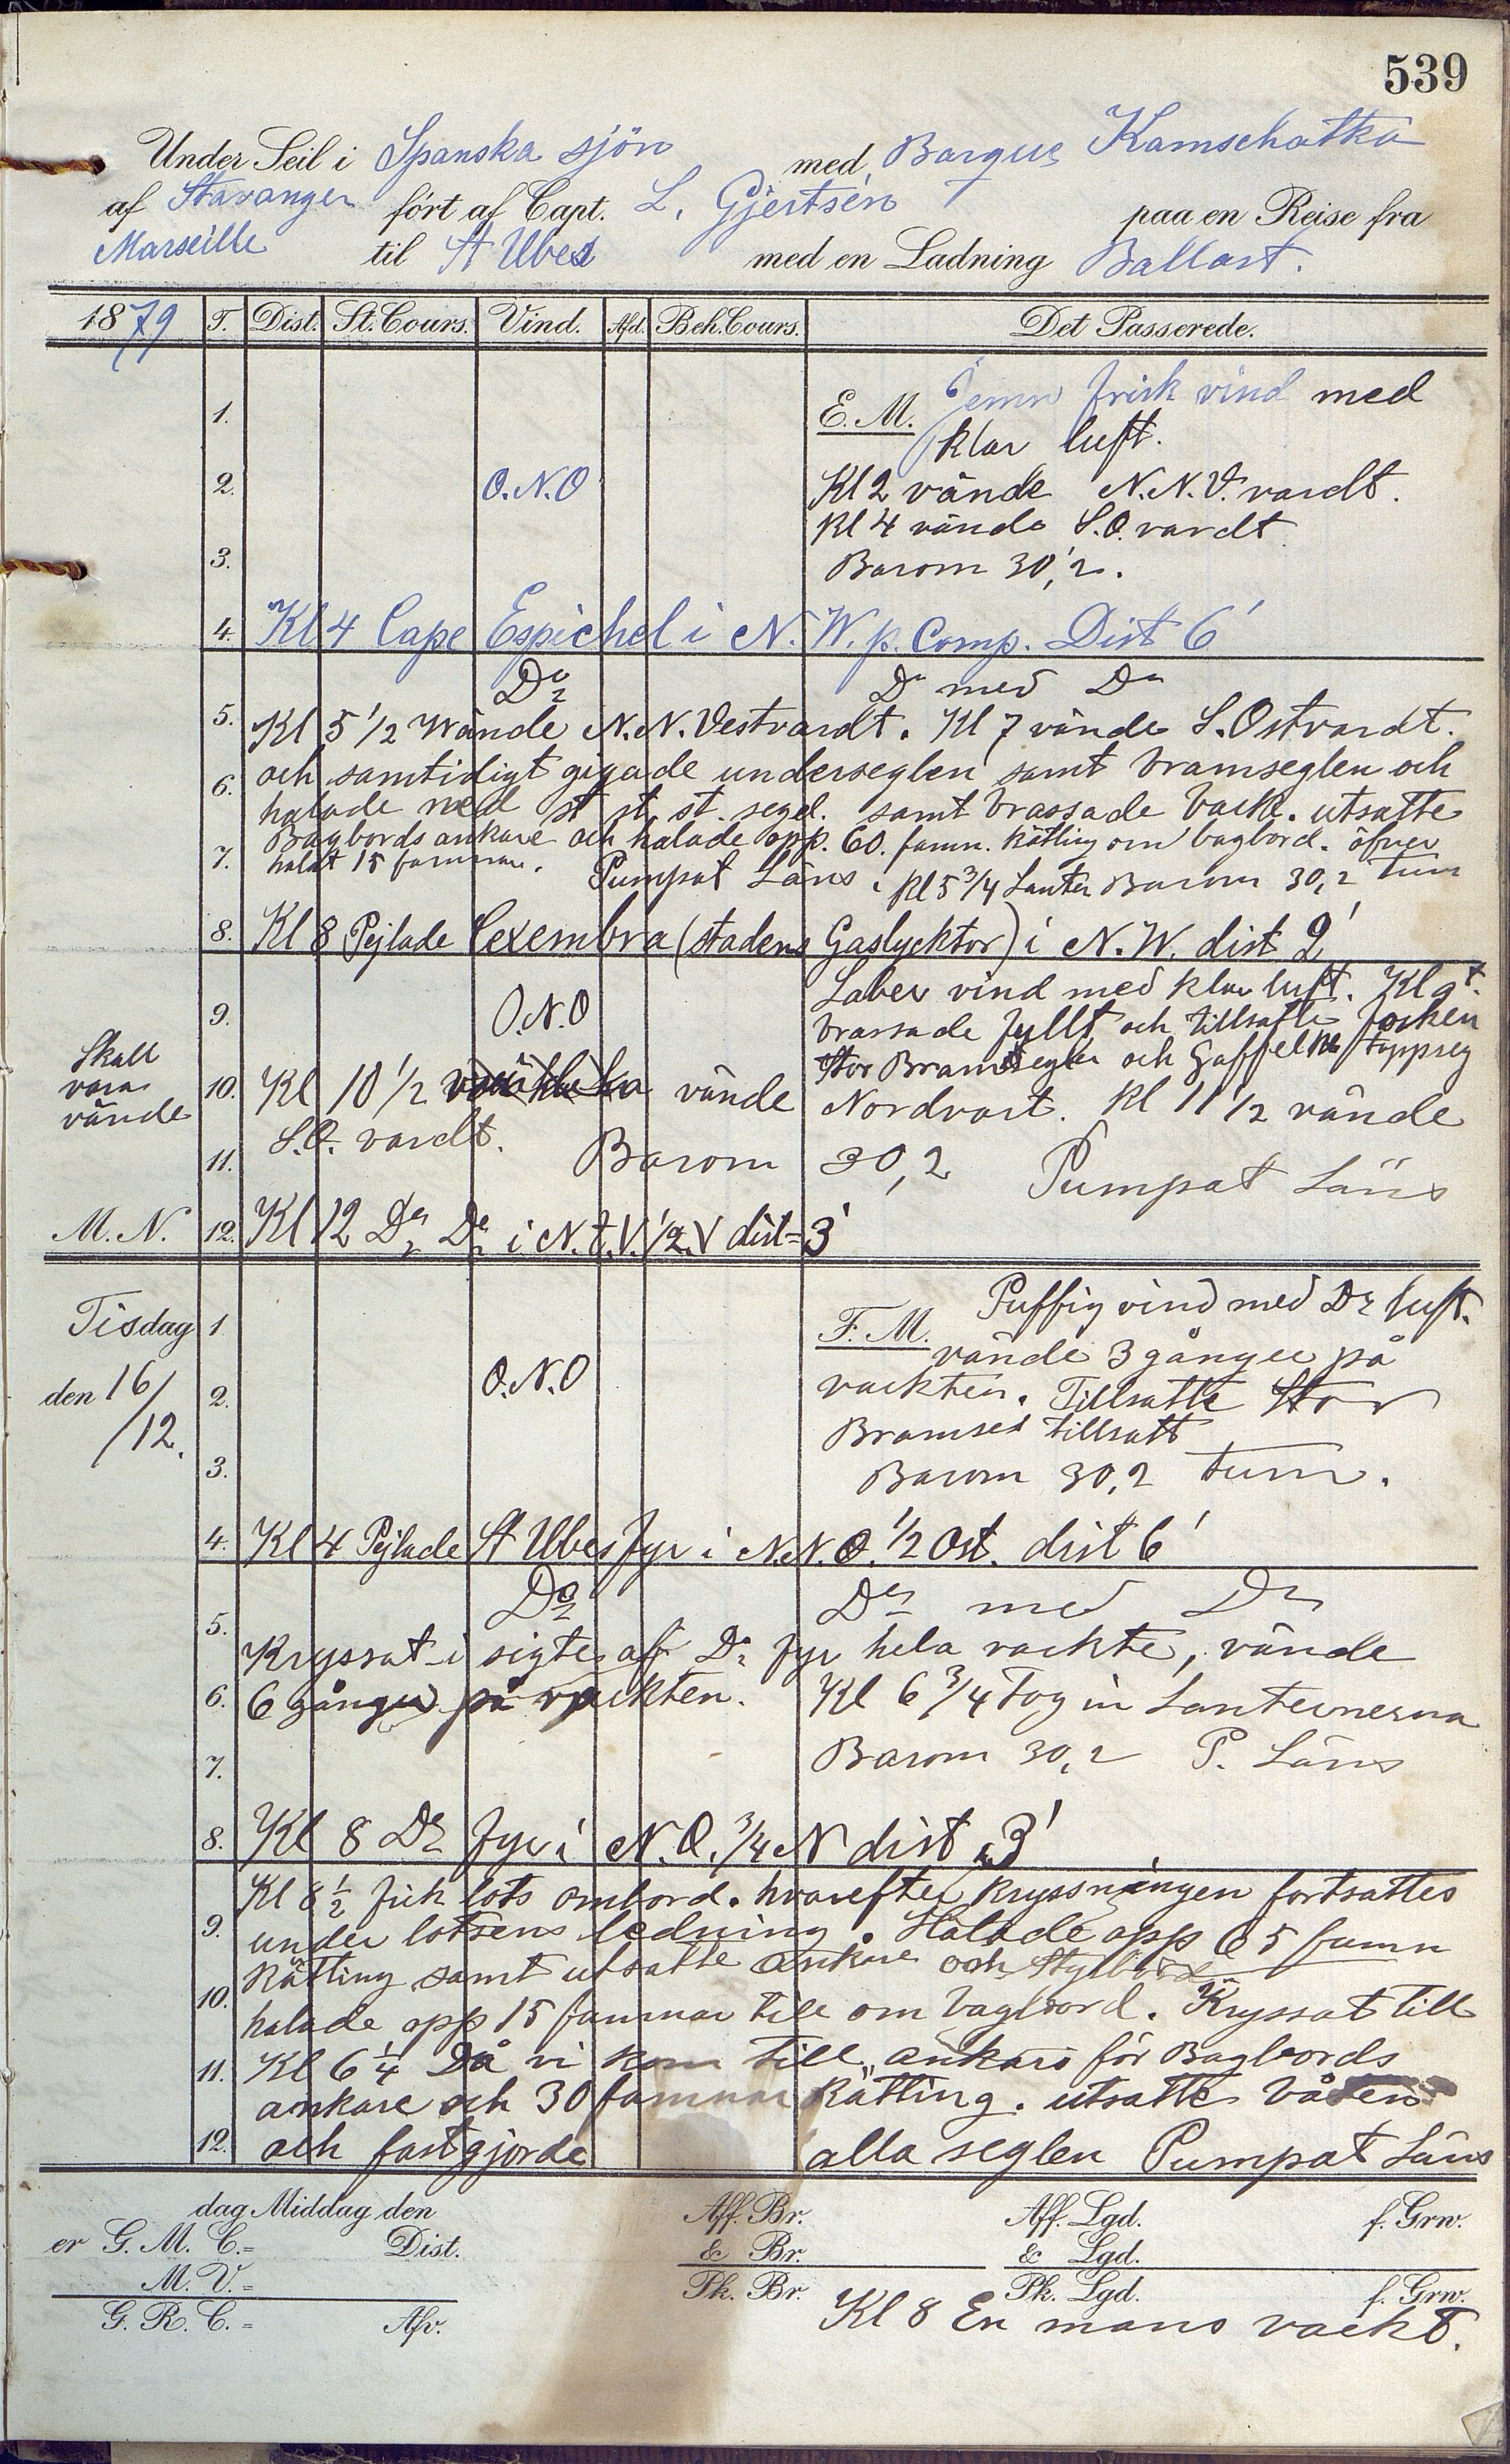 539
Under Seil i Spanska sjön med Barque Kamschatka
af Stavanger fört af Capt. L. Gjertsen paa en Reise fra
Marseille til St Ubes med en Ladning Ballast.
1879 T. Dist. St. Cours. Vind. Afd. Beh. Cours. Det Passerede.
1. E. M. Jemn frisk vind med
klar luft.
2. O.N.O Kl 2 vände N.N.V. vardt.
Kl 4 vände S.O. vardt
3. Barom 30,2.
4. Kl 4 Cape Espichel i N.W. p. Comp. Dist 6'
Do Do med Do
5. Kl 5 1/2 Wände N.N. Vestvardt. Kl 7 vände S. Ostvardt.
6. och samtidigt gigade underseglen samt bramseglen och
halade ned st st. st. segel. samt brassade back. utsatte
Bagbords ankare och halade opp. 60. famn. kätting om bagbord. öfver
7. halat 15 famnar. Pumpat Läns. Kl 5 3/4 Lanter Barom 30,2 tum
8. Kl 8 Pejlade Cezembra (stadens Gaslycktor) i N.W. dist 2'
Laber vind med klar luft. Kl 9t.
9. O.N.O brassade fyllt och tillsatte focken
Stor Bramsegle och Gaffel toppseg
Skall
vara
vände
10. Kl 10 1/2 vände Nordvart. Kl 11 1/2 vände
S.O. vardt.
11. Barom 30,2 Pumpat Läns
M. N. 12. Kl 12 Do Do i N.t.V. 1/2 V dist = 3'
Tisdag
den 16/12.
1 F. M. Puffig vind med Do luft.
vände 3 gånger på
2. O.N.O vackten. Tillsatte Stor
Bramsel tillsatt
3. Barom 30,2 tum.
4. Kl 4 Pejlade St Ubes fyr i N.N.O. 1/2 Ost. dist 6'
Do Do med Do
5. Kryssat i sigte af Do fyr hela vackte, vände
6. 6 gånger på vackten. Kl 6 3/4 Tog in Lanternerna
7. Barom 30,2 P. Läns
8. Kl 8 Do fyr i N.O. 3/4 N dist 3'
Kl 8 1/2 fick lots ombord. hvarefter kryssningen fortsattes
9. under lotsens ledning. Halade opp 65 famn
Kätting samt utsatte ankare och Styrbord
10. halade opp 15 famnar till om bagbord. Kryssat till
11. Kl 6 1/4 Då vi kom till ankars för Bagbords
ankare och 30 famnar Kätting. utsatte båten
12. och fastgjorde alla seglen Pumpat Läns
dag Middag den Aff. Br. Aff. Lgd. f. Grw.
er G. M. C. = Dist. & Br. & Lgd.
M. V. = Pk. Br. Pk. Lgd. f. Grw.
G. R. C. = Afv. Kl 8 En mans vackt.